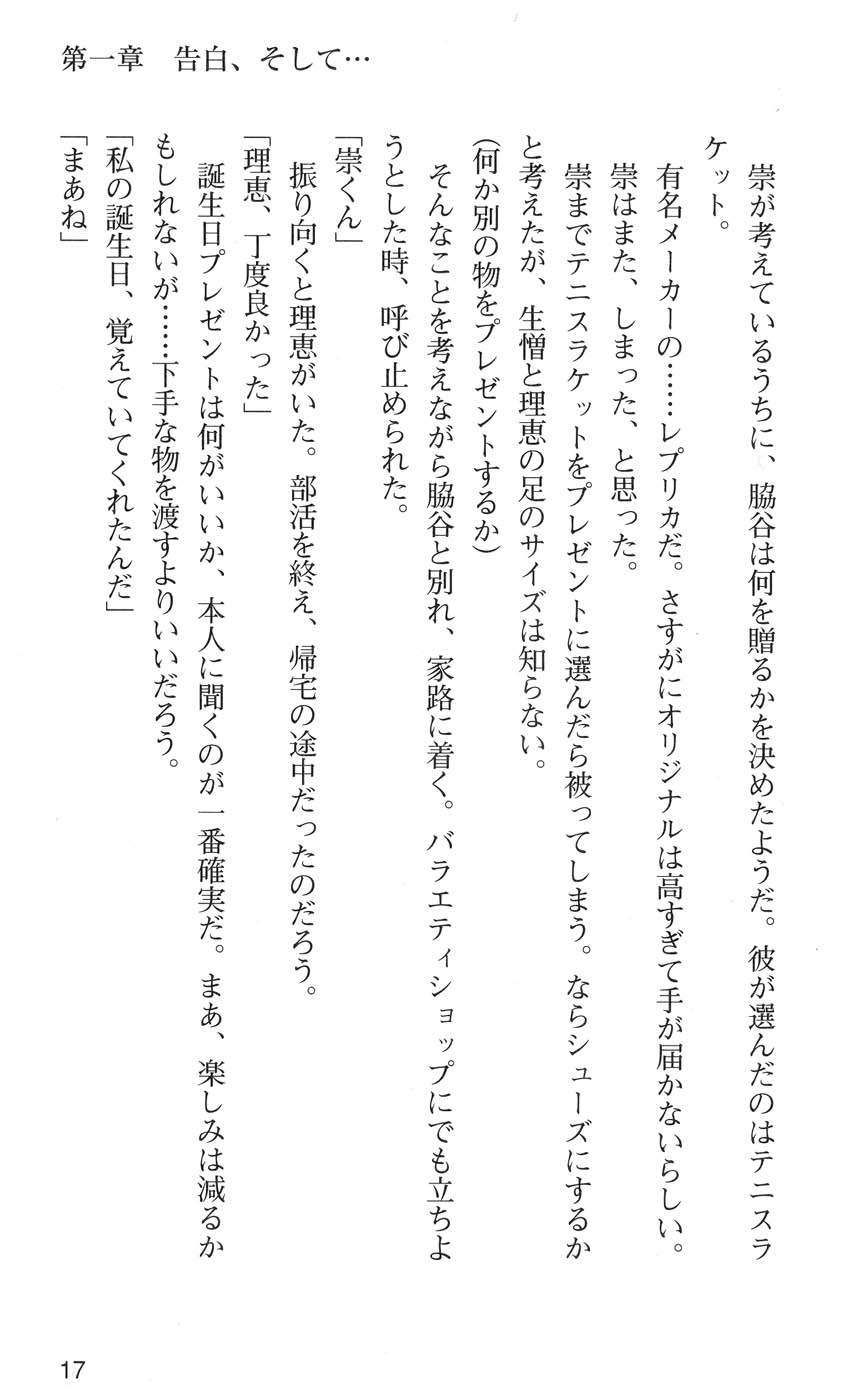 第一章　告白、そして…
　崇が考えているうちに、脇谷は何を贈るかを決めたようだ。彼が選んだのはテニスラ
ケット。
　有名メーカーの……レプリカだ。さすがにオリジナルは高すぎて手が届かないらしい。
　崇はまた、しまった、と思った。
　崇までテニスラケットをプレゼントに選んだら被ってしまう。ならシューズにするか
と考えたが、生憎と理恵の足のサイズは知らない。
（何か別の物をプレゼントするか）
　そんなことを考えながら脇谷と別れ、家路に着く。バラエティショップにでも立ちよ
うとした時、呼び止められた。
「崇くん」
　振り向くと理恵がいた。部活を終え、帰宅の途中だったのだろう。
「理恵、丁度良かった」
　誕生日プレゼントは何がいいか、本人に聞くのが一番確実だ。まあ、楽しみは減るか
もしれないが……下手な物を渡すよりいいだろう。
「私の誕生日、覚えていてくれたんだ」
「まあね」
17